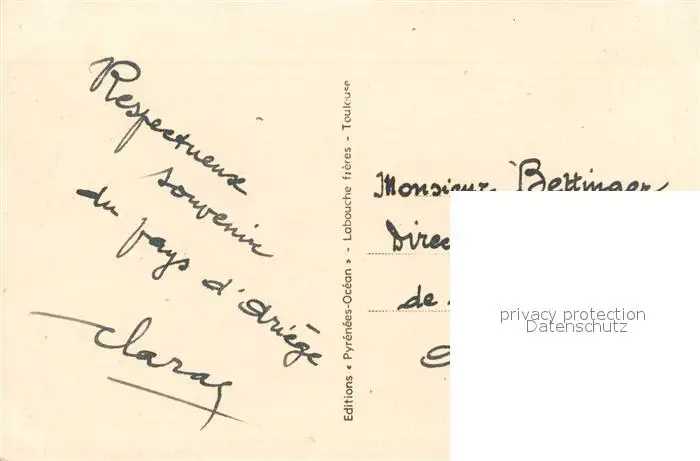 Respectueux
souvenir
du pays d'Ariège
Claraç
Editions « Pyrénées-Océan » - Labouche frères - Toulouse
Monsieur Bettinger
Direc
de
privacy protection
Datenschutz